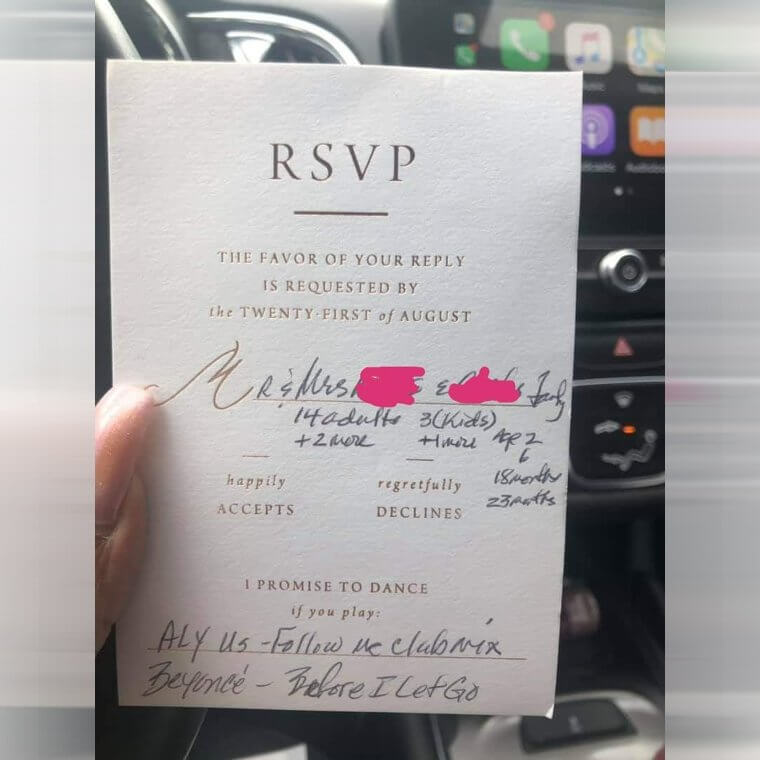 RSVP
THE FAVOR OF YOUR REPLY
IS REQUESTED BY
the TWENTY-FIRST of AUGUST
MR & Mrs & Family
14 adults 3(Kids)
+2 more +1 more Age 2
6
18 months
happily regretfully
23 months
ACCEPTS DECLINES
I PROMISE TO DANCE
if you play:
ALY US - Follow Me club mix
Beyoncé - Before I Let Go